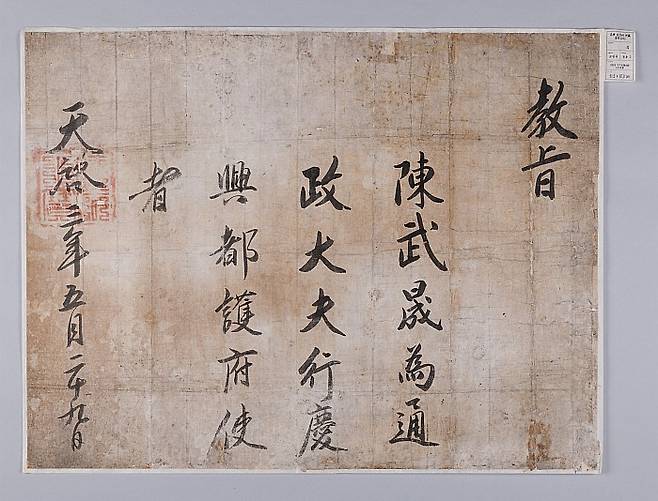 教旨
陳武晟為通
政大夫行慶
興都護府使
者
天啓三年五月二十九日